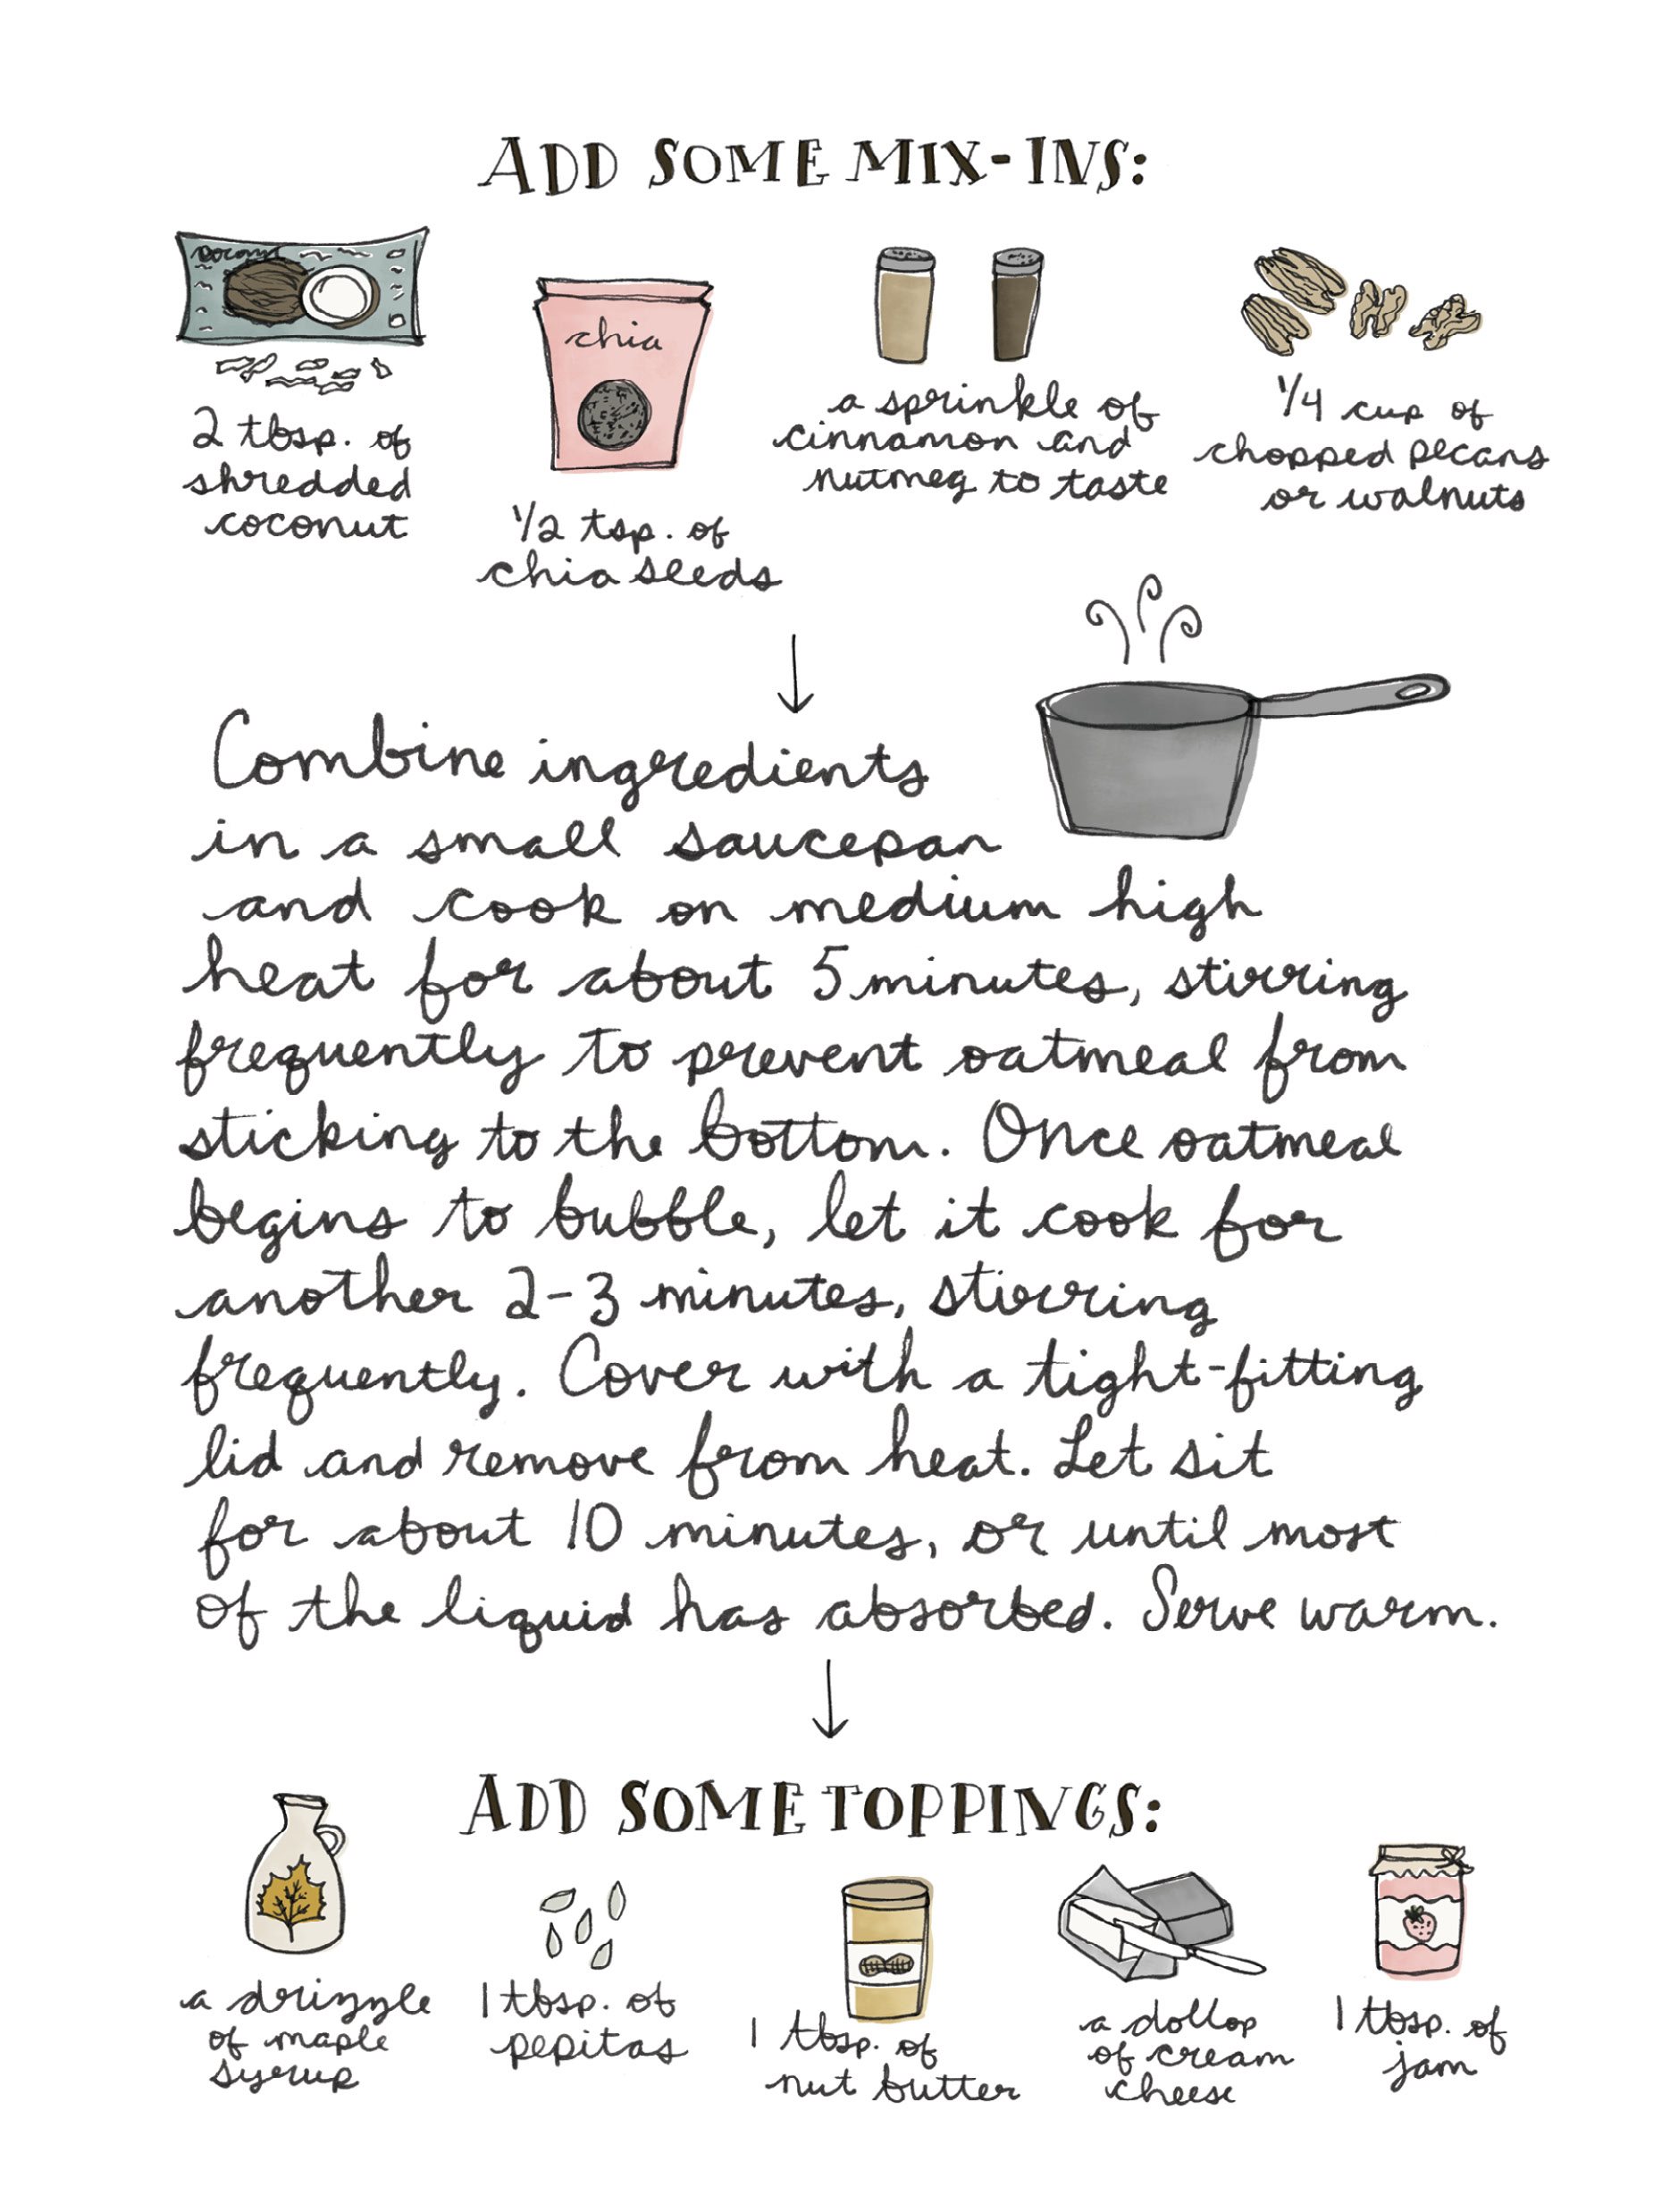 ADD SOME MIX-INS:
2 tbsp. of
shredded
coconut
chia
1/2 tsp. of
chia seeds
a sprinkle of
cinnamon and
nutmeg to taste
1/4 cup of
chopped pecans
or walnuts
Combine ingredients
in a small saucepan
and cook on medium high
heat for about 5 minutes, stirring
frequently to prevent oatmeal from
sticking to the bottom. Once oatmeal
begins to bubble, let it cook for
another 2-3 minutes, stirring
frequently. Cover with a tight-fitting
lid and remove from heat. Let sit
for about 10 minutes, or until most
of the liquid has absorbed. Serve warm.
ADD SOME TOPPINGS:
a drizzle
of maple
syrup
1 tbsp. of
pepitas
1 tbsp. of
nut butter
a dollop
of cream
cheese
1 tbsp. of
jam